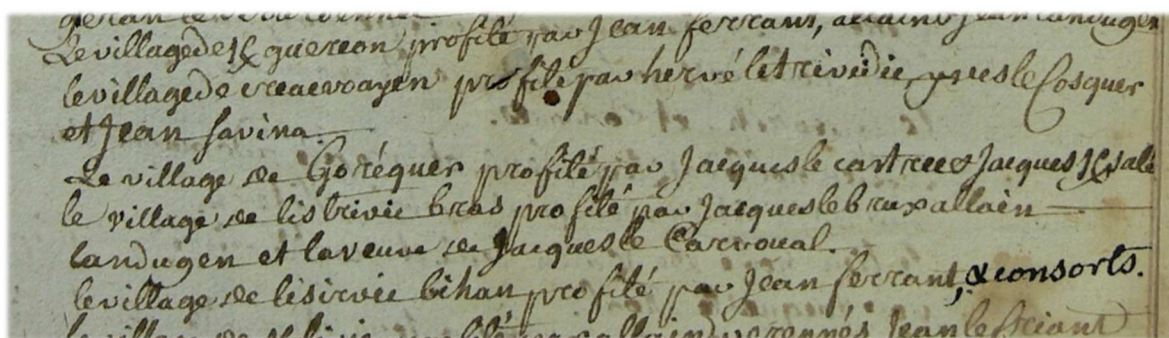 Le village de quereon profité par Jean ferrant, allain Jean Landugen
le village de creacvoayen profité par hervé le trividic, yves le Cosquer
et Jean savina
Le village de Goréquer profité par Jacques le castrec et Jacques
le village de listrivic bras profité par Jacques le brux allain
Landugen et la veuve de Jacques le Carroual.
le village de lisirvic bihan profité par Jean ferrant, & consorts.
le village de profité par allain Jean le